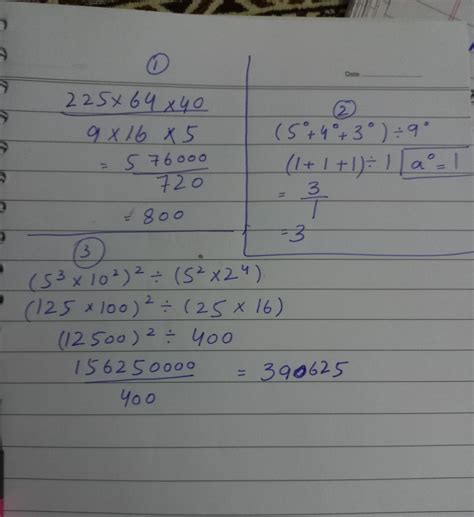 ①
225×64×40
9×16×5
= 576000
720
= 800
Date
②
(5°+4°+3°)÷9°
(1+1+1)÷1 a°=1
= 3
1
=3
③
(5³×10²)²÷(5²×2⁴)
(125×100)²÷(25×16)
(12500)²÷400
156250000 = 390625
400